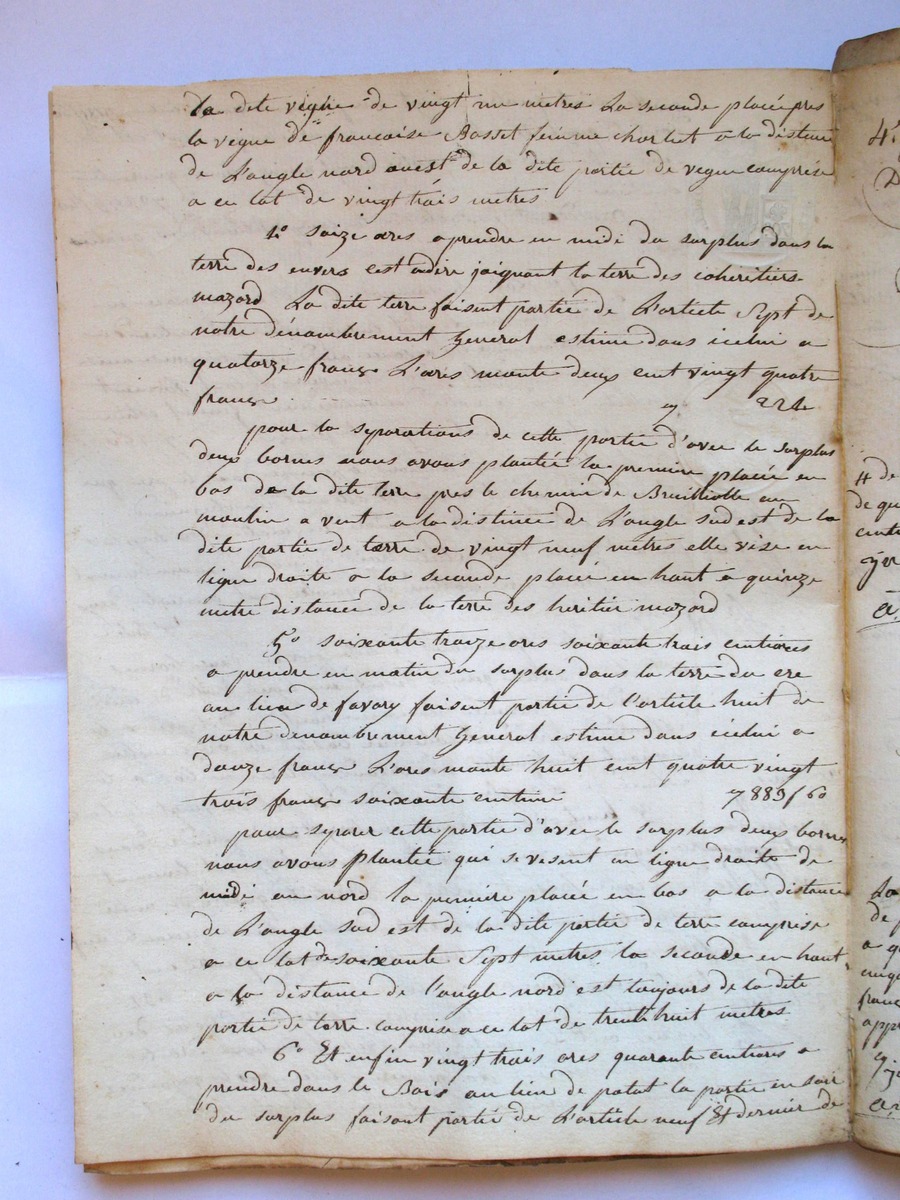 la dite vigne de vingt un metres La seconde placée pres
la vigne de francoise Bosset femme Charlut a la distence
de L'angle nord ouest de la dite partie de vegne comprise
a ce lot de vingt trais metres
4° saize ares a prendre en midi du surplus dans la
terre des envers cest adire joignant la terre des coheretiers
mazord La dite terre faisent partie de L'article Sept de
notre denombrement General estime dans icelui a
quatorze françs L'ares monte deux cent vingt quatre
françs 224
pour la separations de cette partie d'avec le surplus
deux bornes nous avons plantée la premiere placée en
bas de la dite terre pres le chemin de au
moulin a vent a la distence de L'angle sud est de la
dite partie de terre de vingt neuf metres elle vise en
ligne droite a la seconde placée en haut a quinze
metre distance de la terre des heritier mazord
5° soixante traize ares soixante trais centiares
a prendre en matin du surplus dans la terre du cre
au lieu de favory faisent partie de l'article huit de
notre denombrement General estime dans icelui a
douze françs L'ares monte huit cent quatre vingt
trois françs soixante centime 883f60
pour separer cette partie d'avec le surplus deux bornes
nous avons plantée qui se vesent en ligne droite de
midi au nord la premiere placée en bas a la distance
de L'angle sud est de la dite partie de terre comprise
a ce lot de soixante Sept metres la seconde en haut
a la distance de l'angle nord est toujours de la dite
partie de terre comprise a ce lot de trente huit metres
6° Et enfin vingt trais ares quarante centiares a
prendre dans le Bois au lieu de patat la partie en soir
du surplus faisant partie de L'article neuf Et dernier de